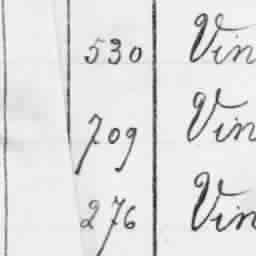 530 Vin
709 Vin
276 Vin